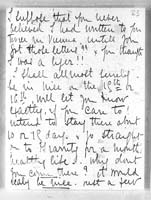 I suppose that you never
believed I had written to you
twice in Vienna until you
got those letters & you thought
I was a liar!!
I shall almost surely
be in Nice on the 19th or
16th will let you know
exactly, if you care to,
intend to stay there about
10 or 12 days. & go straight
to Gravity for a month
healthy life. Why don't
you come there? it would
really be nice. Just a few